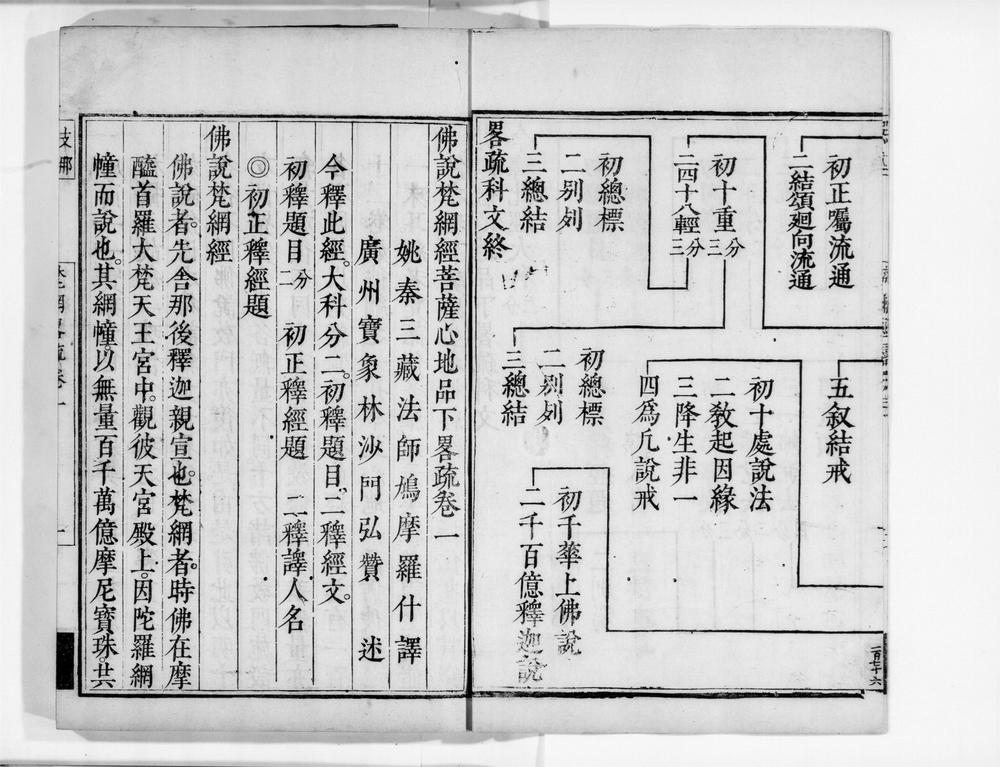 初正囑流通
二結頌廻向流通
五叙結戒
初十重三分
二四十八輕三分
初十處說法
二敎起因緣
三降生非一
四爲凢說戒
初千華上佛說
二千百億釋迦說
初總標
二别列
三總結
初總標
二别列
三總結
畧疏科文終
一百七十六
佛說梵網經菩薩心地品下畧疏卷一
姚秦三藏法師鳩摩羅什譯
廣州寶象林沙門弘贊 述
今釋此經大科分二。初釋題目。二釋經文。
初釋題目二分 初正釋經題 二釋譯人名
◎初正釋經題
佛說梵網經
佛說者。先舍那後釋迦親宣也。梵網者。時佛在摩
醯首羅大梵天王宮中。觀彼天宮殿上。因陀羅網
幢而說也。其網幢。以無量百千萬億摩尼寶珠。共